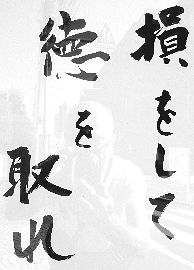 損をして
徳を取れ